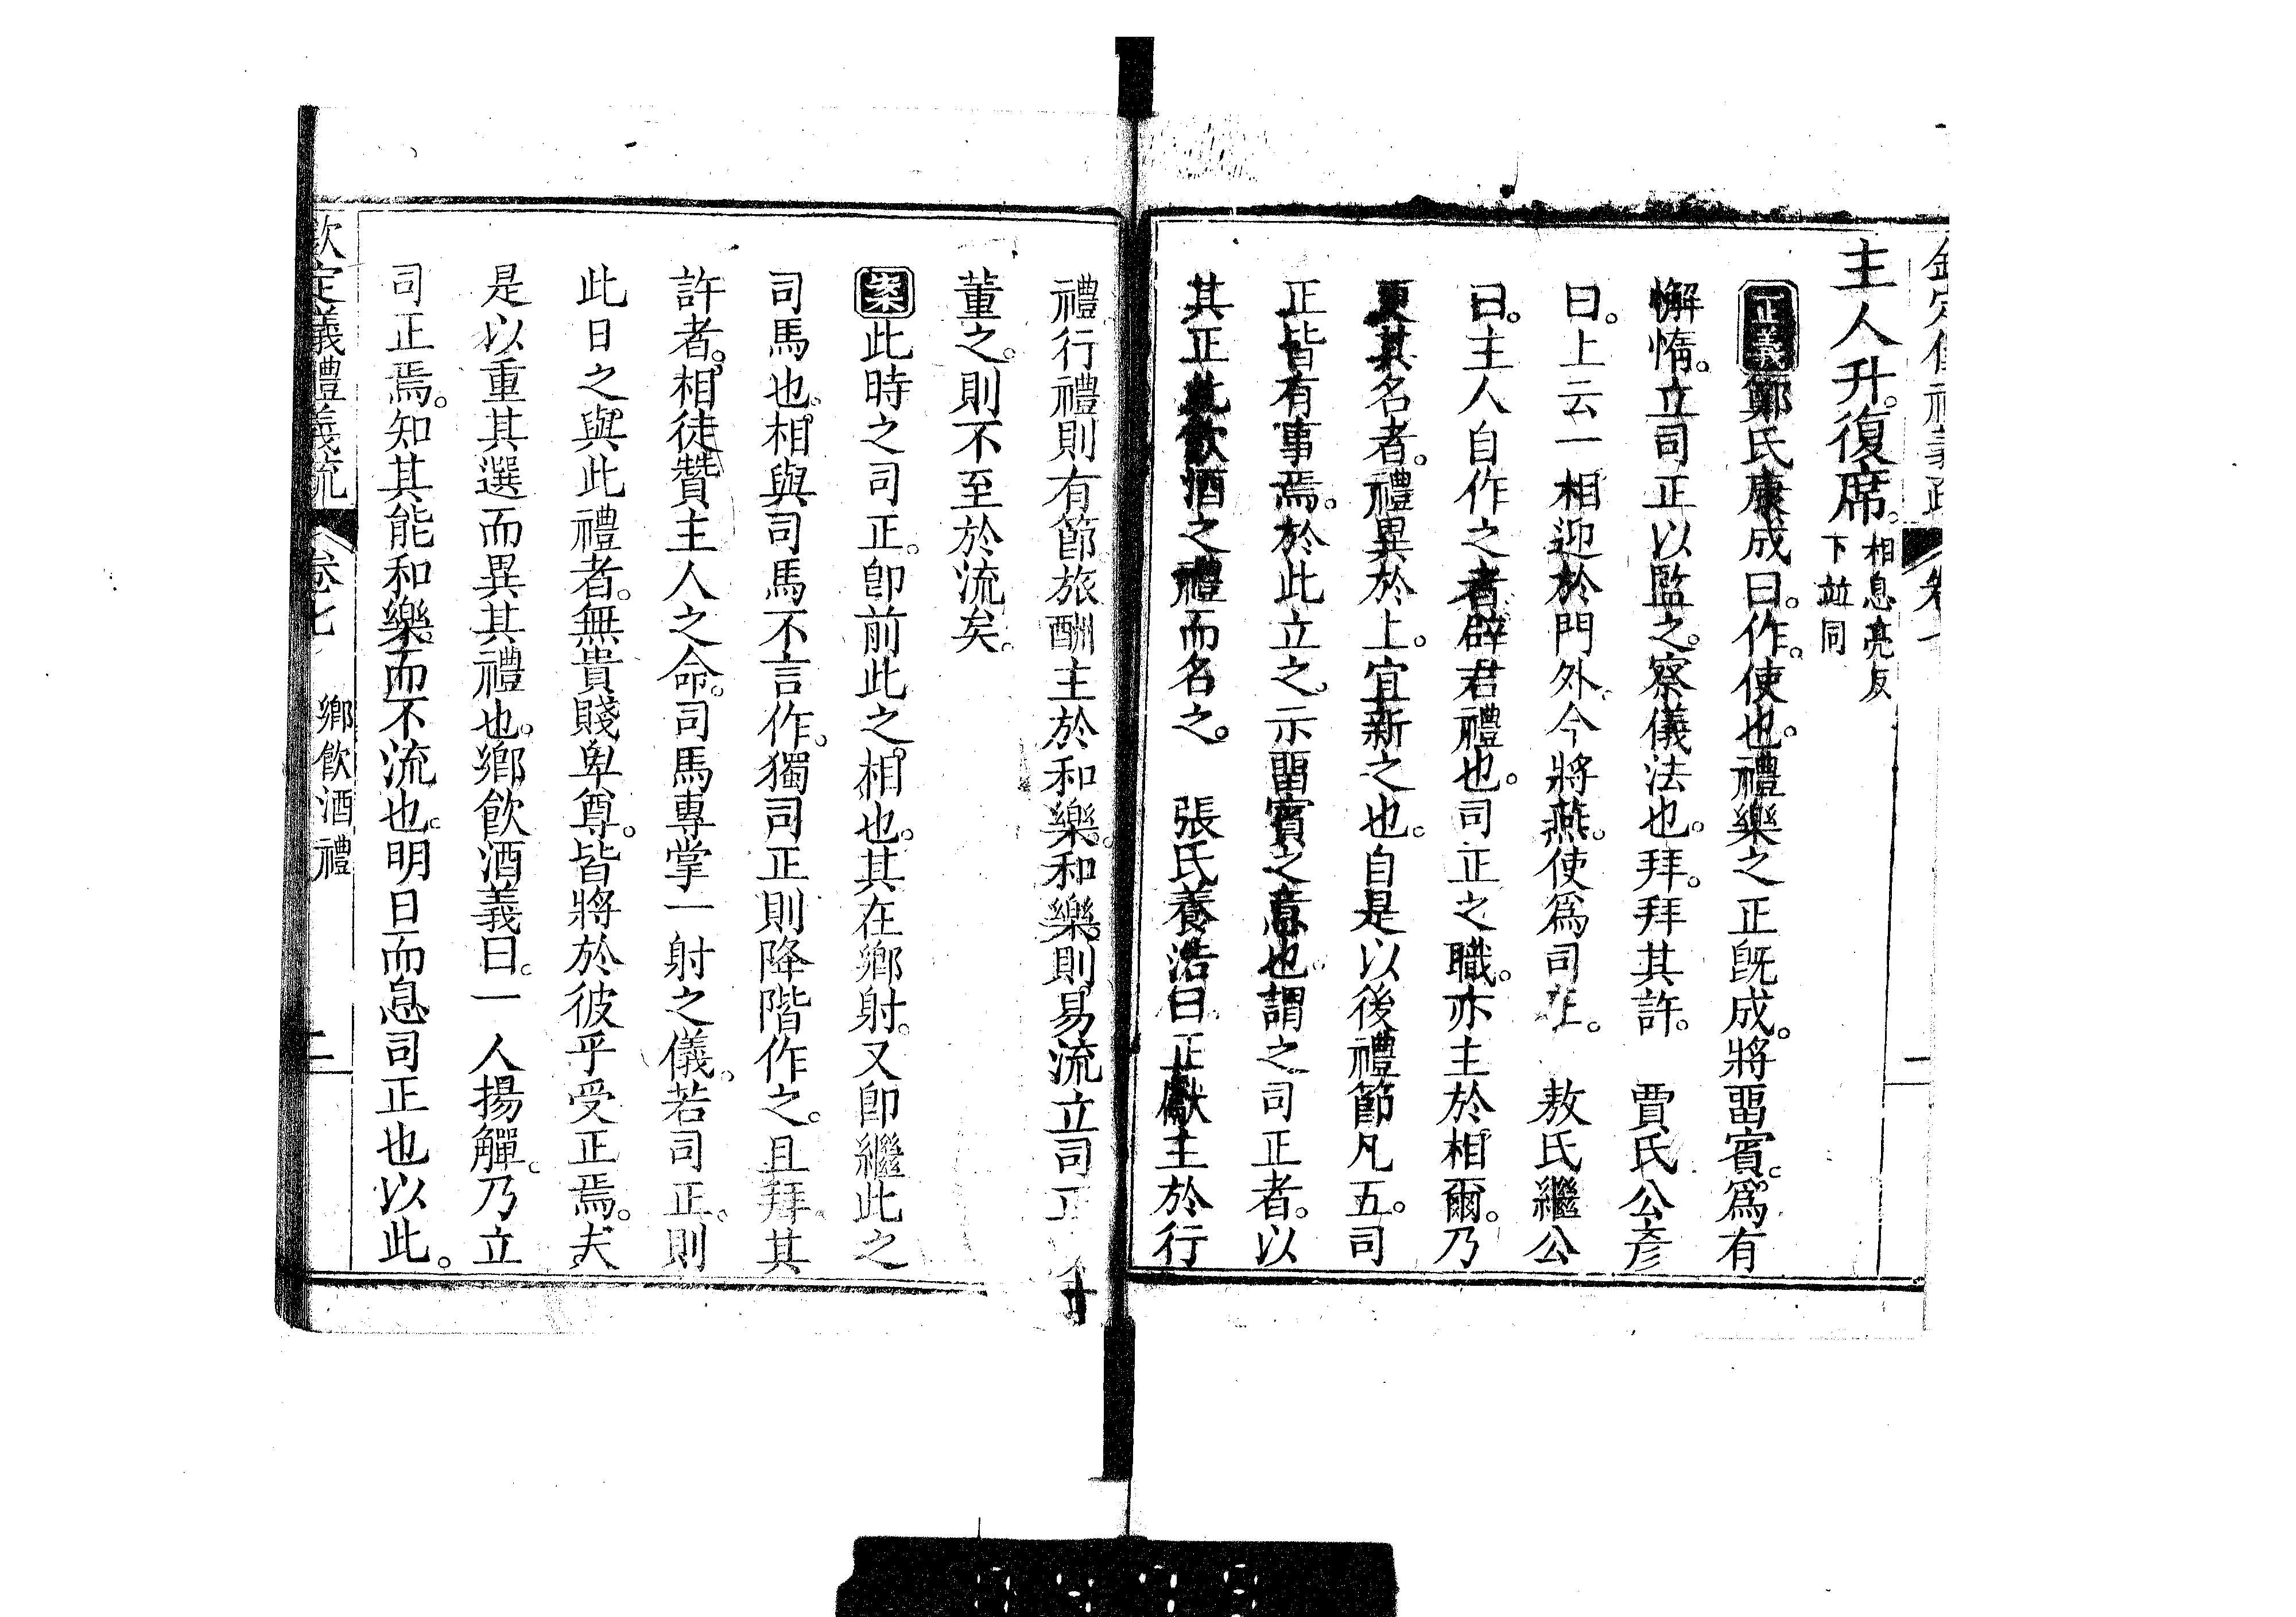 主人升。復席。相息亮反
下並同
正義鄭氏康成曰。作。使也。禮樂之正既成。將留賓。爲有
懈惰。立司正以監之。察儀法也。拜。拜其許。 賈氏公彥
曰。上云一相迎於門外。今將燕。使爲司正。 敖氏繼公
曰。主人自作之者。辟君禮也。司正之職。亦主於相爾。乃
更其名者。禮異於上。宜新之也。自是以後禮節凡五。司
正皆有事焉。於此立之。示留賓之意也。謂之司正者。以
其正此飲酒之禮而名之。 張氏養浩曰。正獻主於行
禮。行禮則有節。旅酬主於和樂。和樂則易流。立司正
董之。則不至於流矣。
案此時之司正。卽前此之相也。其在鄉射。又卽繼此之
司馬也。相與司馬不言作。獨司正則降階作之。且拜其
許者。相徒贊主人之命。司馬專掌一射之儀。若司正。則
此日之與此禮者。無貴賤卑尊。皆將於彼乎受正焉。夫
是以重其選而異其禮也。鄉飲酒義曰。一人揚觶。乃立
司正焉。知其能和樂而不流也。明日而息司正也以此。
欽定義禮義疏 卷七 鄉飲酒禮 二